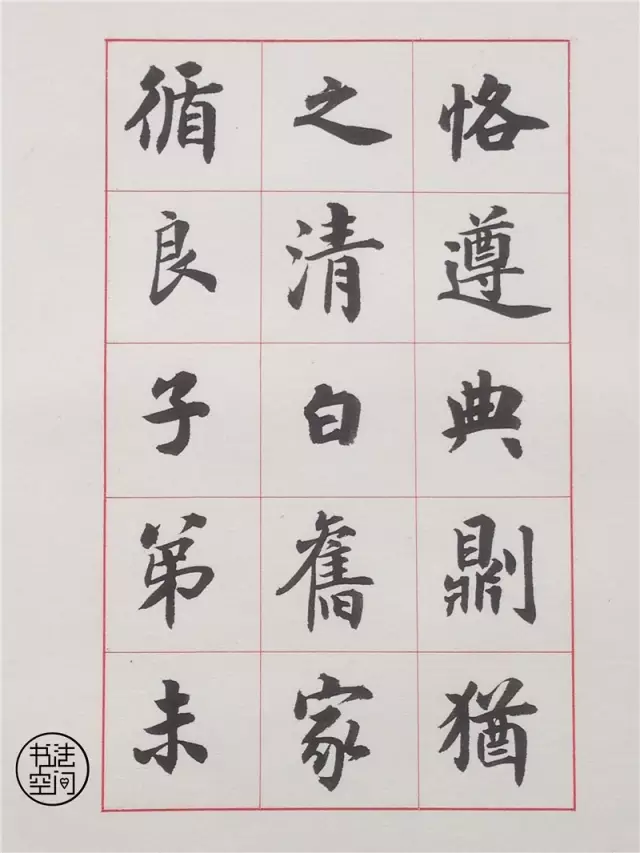 恪遵典𠟭猶
之清白舊家
循良子弟未
书法
空间